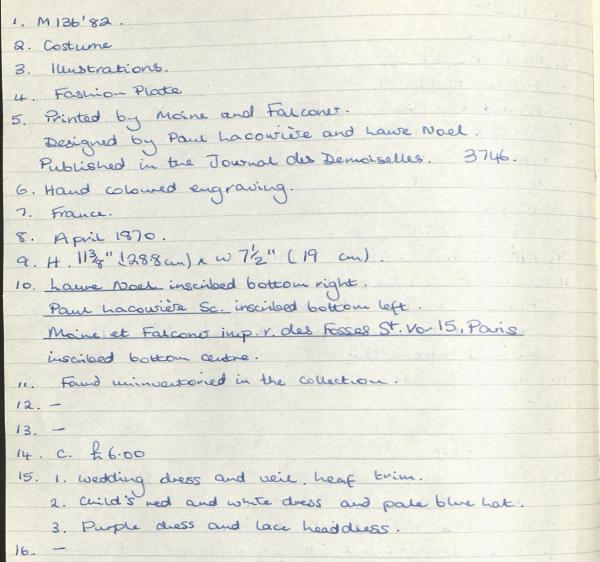 1. M136'82.
2. Costume
3. Illustrations.
4. Fashion Plate
5. Printed by Moine and Falconer.
Designed by Paul Lacourière and Laure Noel.
Published in the Journal des Demoiselles. 3746.
6. Hand coloured engraving.
7. France.
8. April 1870.
9. H. 11 3/8" (28.8cm) x W 7 1/2" (19 cm).
10. Laure Noel inscribed bottom right.
Paul Lacourière Sc. inscribed bottom left.
Moine et Falconer imp. r. des Fosses St. Vor 15, Paris
inscribed bottom centre.
11. Found uninventoried in the collection.
12. –
13. –
14. C. £6.00
15. 1. Wedding dress and veil, leaf trim.
2. Child's red and white dress and pale blue hat.
3. Purple dress and lace headdress.
16. –